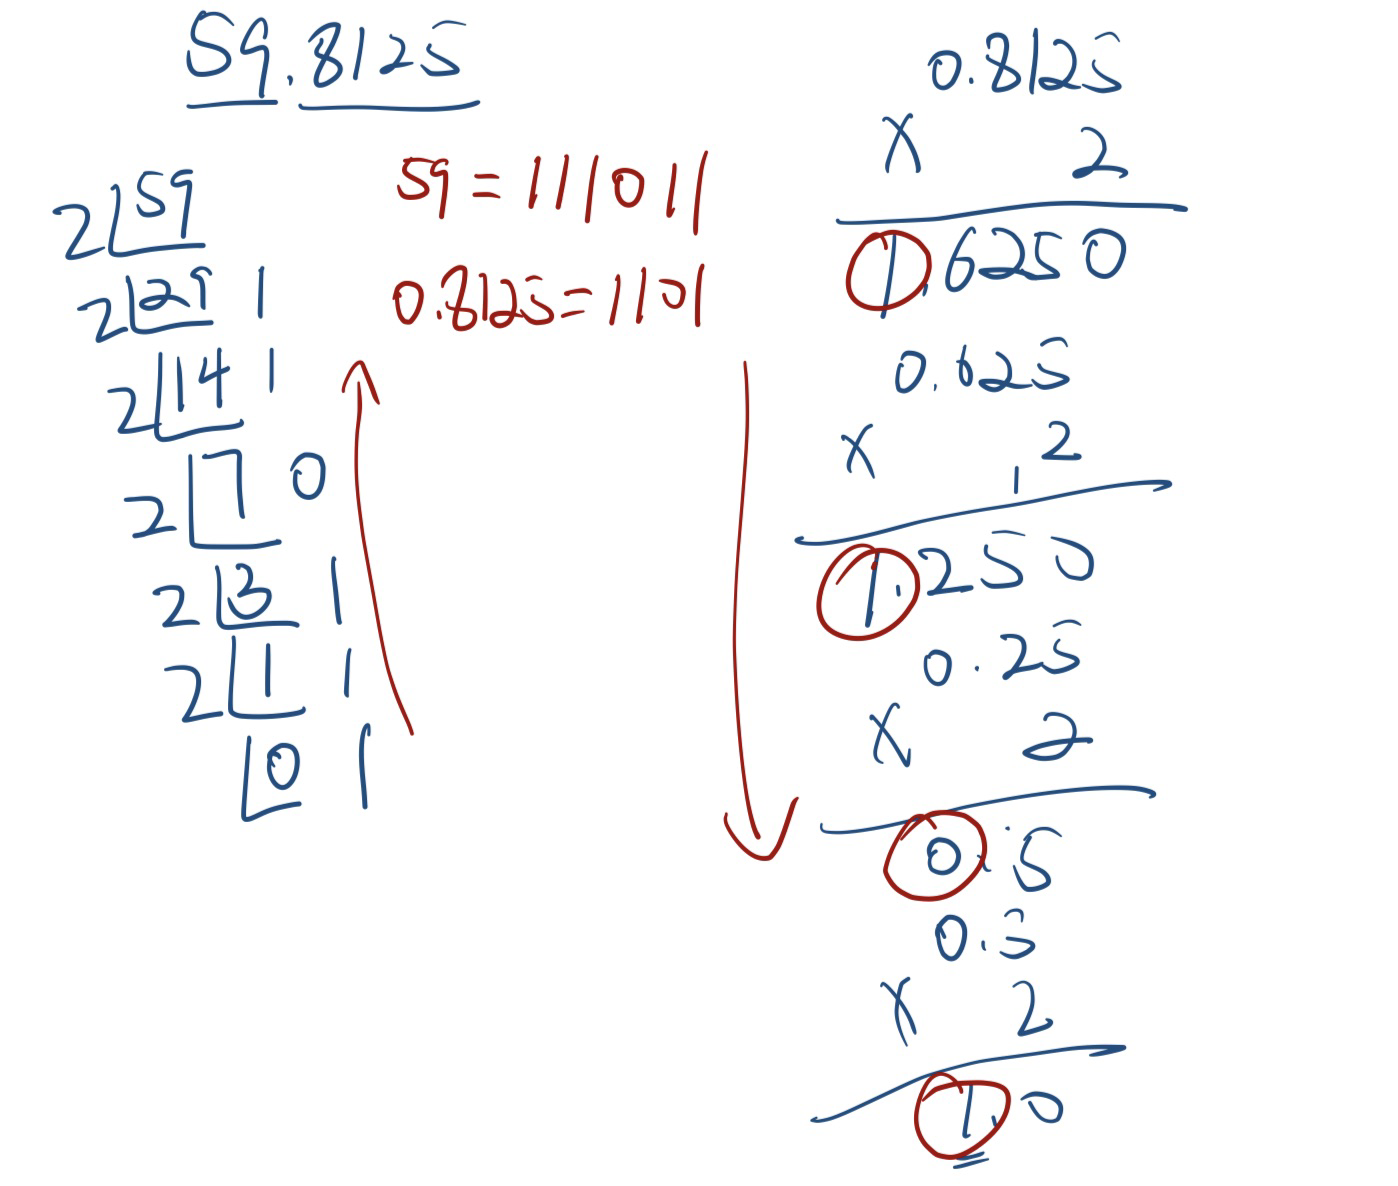 59.8125
2 59
2 29 1
2 14 1
2 7 0
2 3 1
2 1 1
0 1
59 = 111011
0.8125 = 1101
0.8125
x 2
1.6250
0.625
x 2
1
1.250
0.25
x 2
0.5
0.5
x 2
1.0